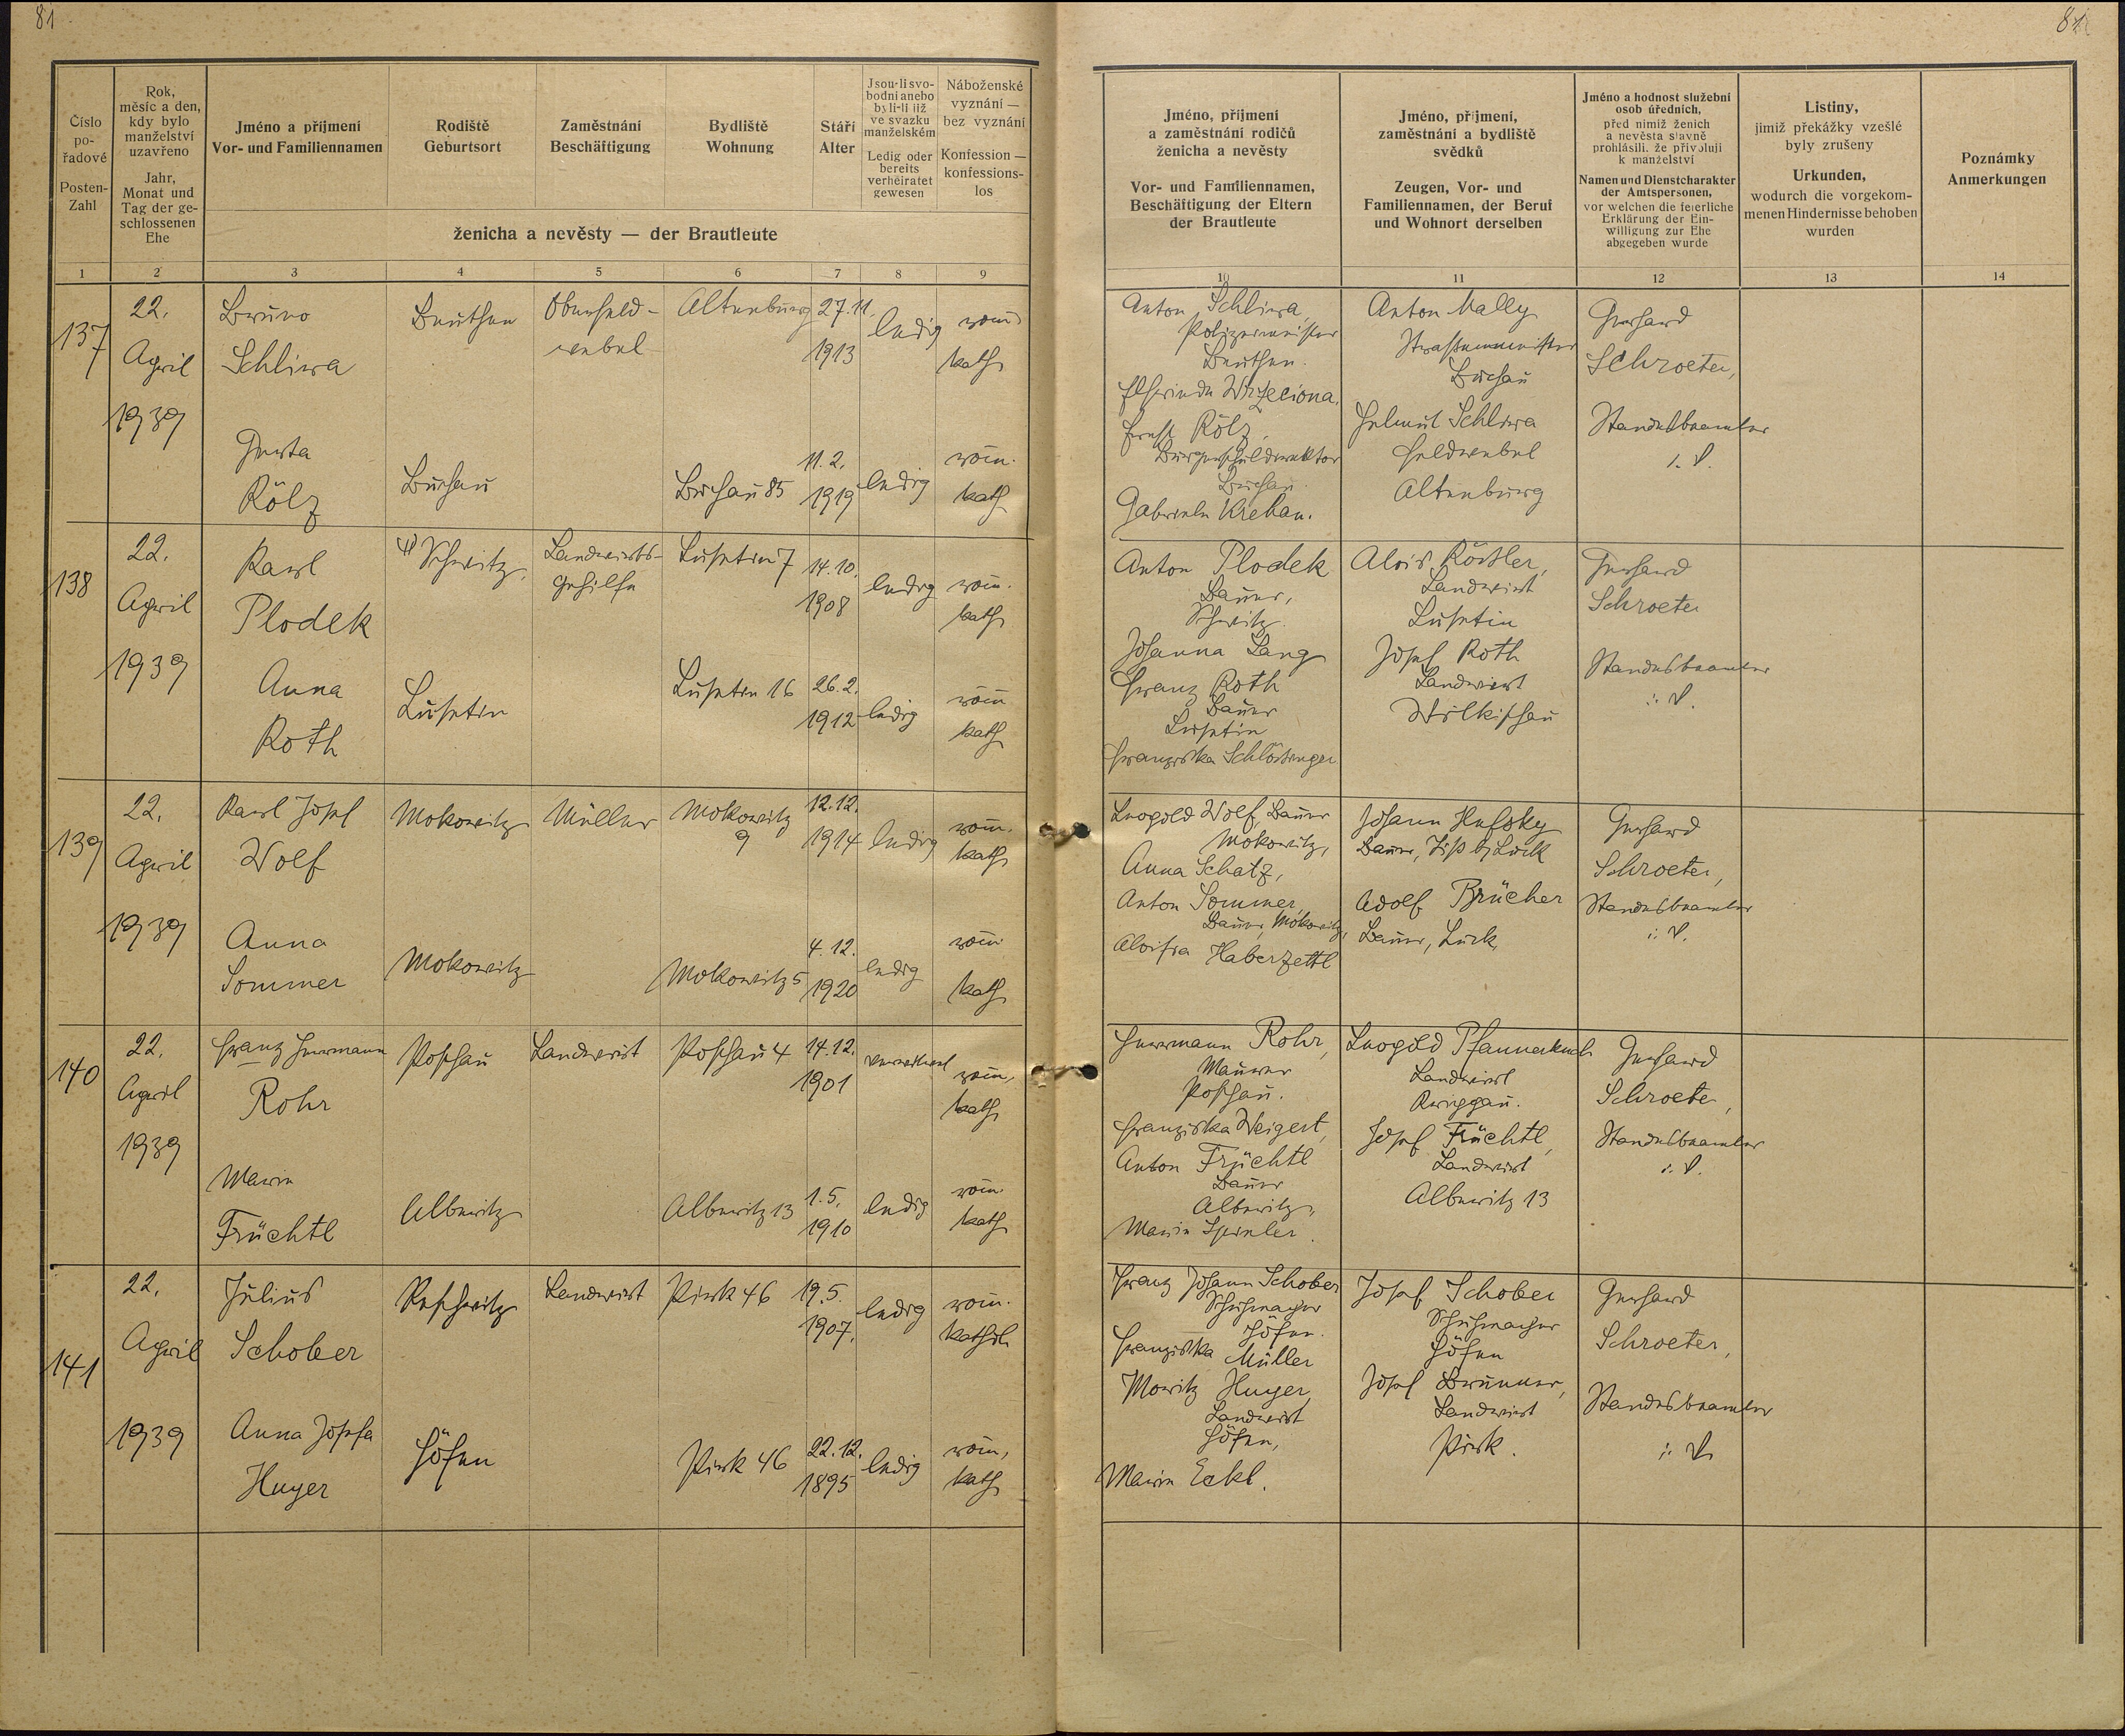 81
81
Číslo
po-
řadové
Posten-
Zahl
Rok,
měsíc a den,
kdy bylo
manželství
uzavřeno
Jahr,
Monat und
Tag der ge-
schlossenen
Ehe
Jméno a příjmení
Vor- und Familiennamen
Rodiště
Geburtsort
Zaměstnání
Beschäftigung
Bydliště
Wohnung
Stáří
Alter
Jsou-li svo-
bodni anebo
byli-li již
ve svazku
manželském
Ledig oder
bereits
verheiratet
gewesen
Náboženské
vyznání —
bez vyznání
Konfession —
konfessions-
los
ženicha a nevěsty — der Brautleute
1 2 3 4 5 6 7 8 9
Jméno, příjmení
a zaměstnání rodičů
ženicha a nevěsty
Vor- und Familiennamen,
Beschäftigung der Eltern
der Brautleute
Jméno, příjmení,
zaměstnání a bydliště
svědků
Zeugen, Vor- und
Familiennamen, der Beruf
und Wohnort derselben
Jméno a hodnost služební
osob úředních,
před nimiž ženich
a nevěsta slavně
prohlásili, že přivolují
k manželství
Namen und Dienstcharakter
der Amtspersonen,
vor welchen die feierliche
Erklärung der Ein-
willigung zur Ehe
abgegeben wurde
Listiny,
jimiž překážky vzešlé
byly zrušeny
Urkunden,
wodurch die vorgekom-
menen Hindernisse behoben
wurden
Poznámky
Anmerkungen
10 11 12 13 14
137
22.
April
1939
Bruno
Schliwa
Beuthen
Oberfeld-
webel
Altenburg
27.11.
1913
ledig
röm
kath
Gerta
Rölz
Buchau
Buchau 85
11. 2.
1919
ledig
röm.
kath
Anton Schliwa,
Polizeimeister
Beuthen.
Ernst Rölz,
Bürgerschuldirektor
Buchau.
Gabriele Krehan.
Anton Mally
Strassenmeister
Buchau
Helmut Schliwa
Feldwebel
Altenburg
Gerhard
Schroeter,
Standesbeamter
i. V.
138
22.
April
1939
Karl
Plodek
Schwitz,
Landwirts-
gehilfe
Lusetin 7
14. 10.
1908
ledig
röm.
kath
Anna
Roth
Lusetin
Lusetin 16
26. 2.
1912
ledig
röm
kath
Anton Plodek
Bauer,
Schwitz.
Johanna Lang
Franz Roth
Bauer
Lusetin
Franziska Schlösinger
Alois Rössler,
Landwirt
Lusetin
Josef Roth
Landwirt
Wilkischau
Gerhard
Schroeter
Standesbeamter
i. V.
139
22.
April
1939
Karl Josef
Wolf
Mokowitz
Müller
Mokowitz
9
12.12.
1914
ledig
röm.
kath
Anna
Sommer
Mokowitz
Mokowitz 5
4. 12.
1920
ledig
röm
kath
Leopold Wolf, Bauer
Mokowitz,
Anna Schatz,
Anton Sommer,
Bauer, Mokowitz,
Aloisia Haberzettl
Johann Hufsky
Bauer, b/Luck
Adolf Brücher
Bauer, Luck
Gerhard
Schroeter,
Standesbeamter
i. V.
140
22.
April
1939
Franz Hermann
Rohr
Poschau
Landwirt
Poschau 4
14.12.
1901
verwitwet
röm,
kath
Marie
Früchtl
Albernitz
Albernitz 13
1. 5.
1910
ledig
röm.
kath
Hermann Rohr,
Maurer
Poschau.
Franziska Weigert,
Anton Früchtl
Bauer
Albernitz,
Marie
Leopold Pfannerkuch
Landwirt
Josef Früchtl,
Landwirt
Albernitz 13
Gerhard
Schroeter,
Standesbeamter
i. V.
141
22.
April
1939
Julius
Schober
Reschwitz
Landwirt
Pirk 46
19. 5.
1907.
ledig
röm.
kathol
Anna Josefa
Huyer
Höfen
Pirk 46
22. 12.
1895
ledig
röm,
kath
Franz Johann Schober
Schuhmacher
Höfen.
Franziska Müller
Moritz Huyer,
Landwirt
Höfen,
Marie Eckl.
Josef Schober
Schuhmacher
Höfen
Josef Brunner,
Landwirt
Pirk.
Gerhard
Schroeter,
Standesbeamter
i. V.